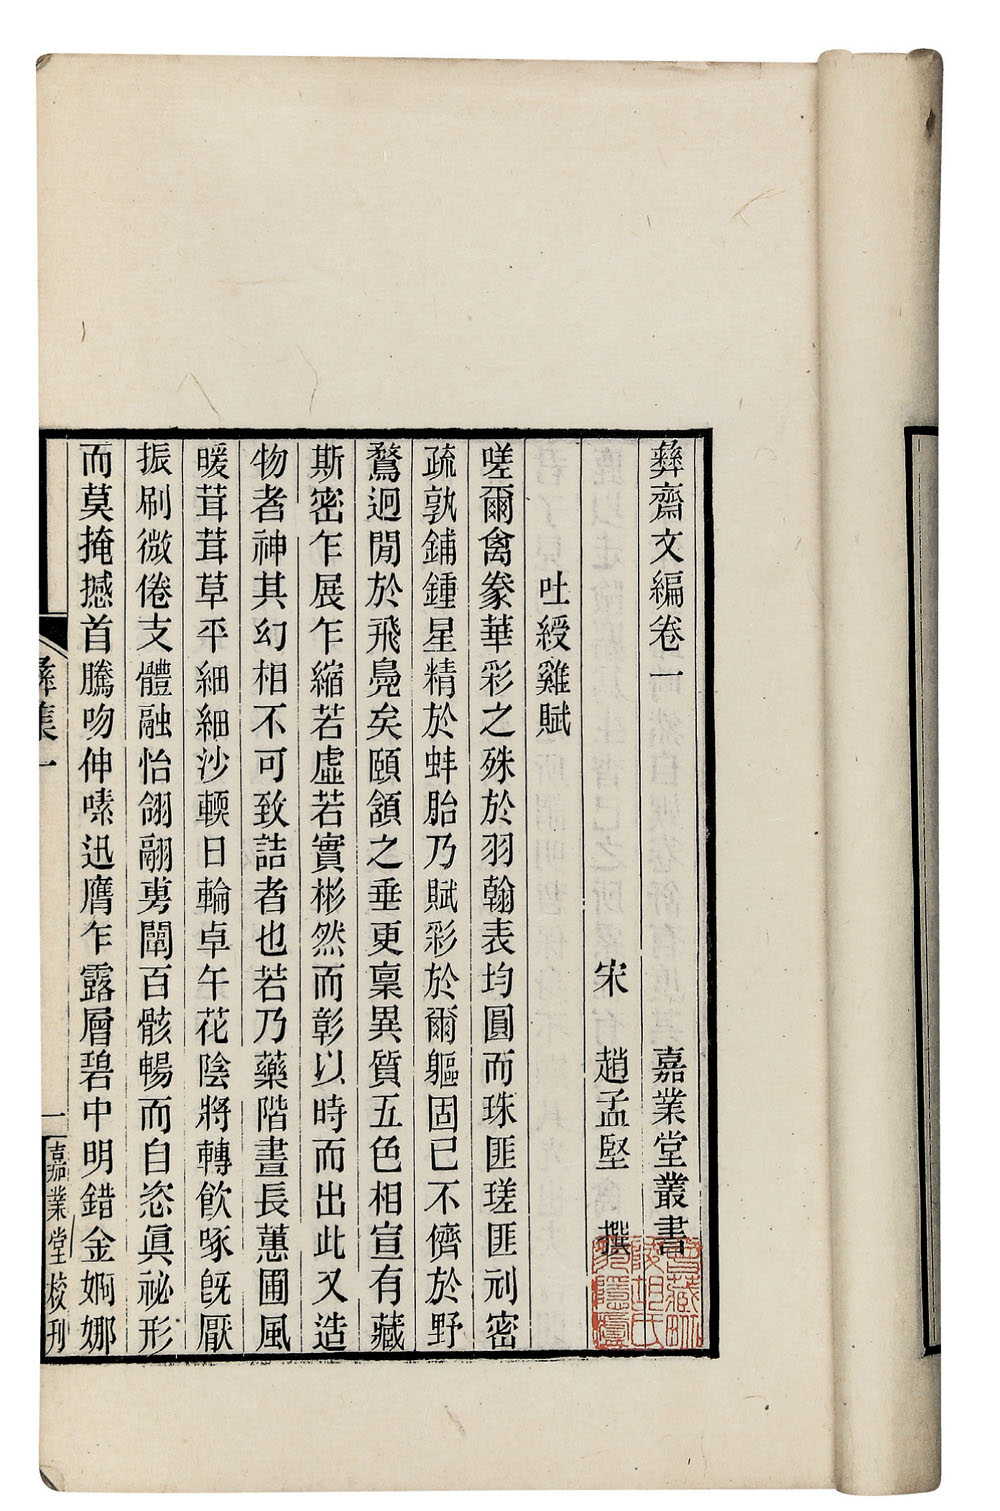 彜齋文編卷一　嘉業堂叢書
宋　趙孟堅　撰
吐綬雞賦
嗟爾禽豢華彩之殊於羽翰表均圓而珠匪瑳匪刓密
疏孰鋪鍾星精於蚌胎乃賦彩於爾軀固已不儕於野
鶩迥閒於飛鳧矣頤頷之垂更稟異質五色相宣有藏
斯密乍展乍縮若虛若實彬然而彰以時而出此又造
物者神其幻相不可致詰者也若乃藥階晝長蕙圃風
暖茸茸草平細細沙輭日輪卓午花陰將轉飮啄旣厭
振刷微倦支體融怡翎翮旉闡百骸暢而自恣眞祕形
而莫掩撼首騰吻伸嗉迅膺乍露層碧中明錯金婀娜
彜集一
一
嘉業堂校刊